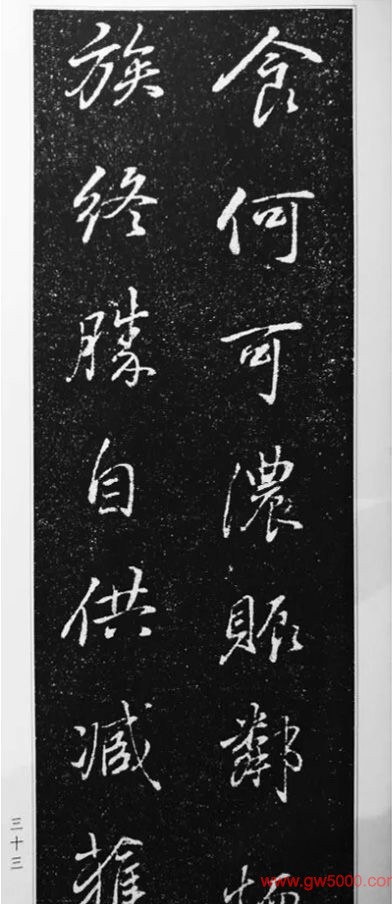 食何可濃賑鄰
族終勝自供減
三十三
www.gw5000.com